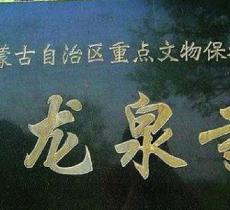 蒙古自治区重点文物保
龙泉